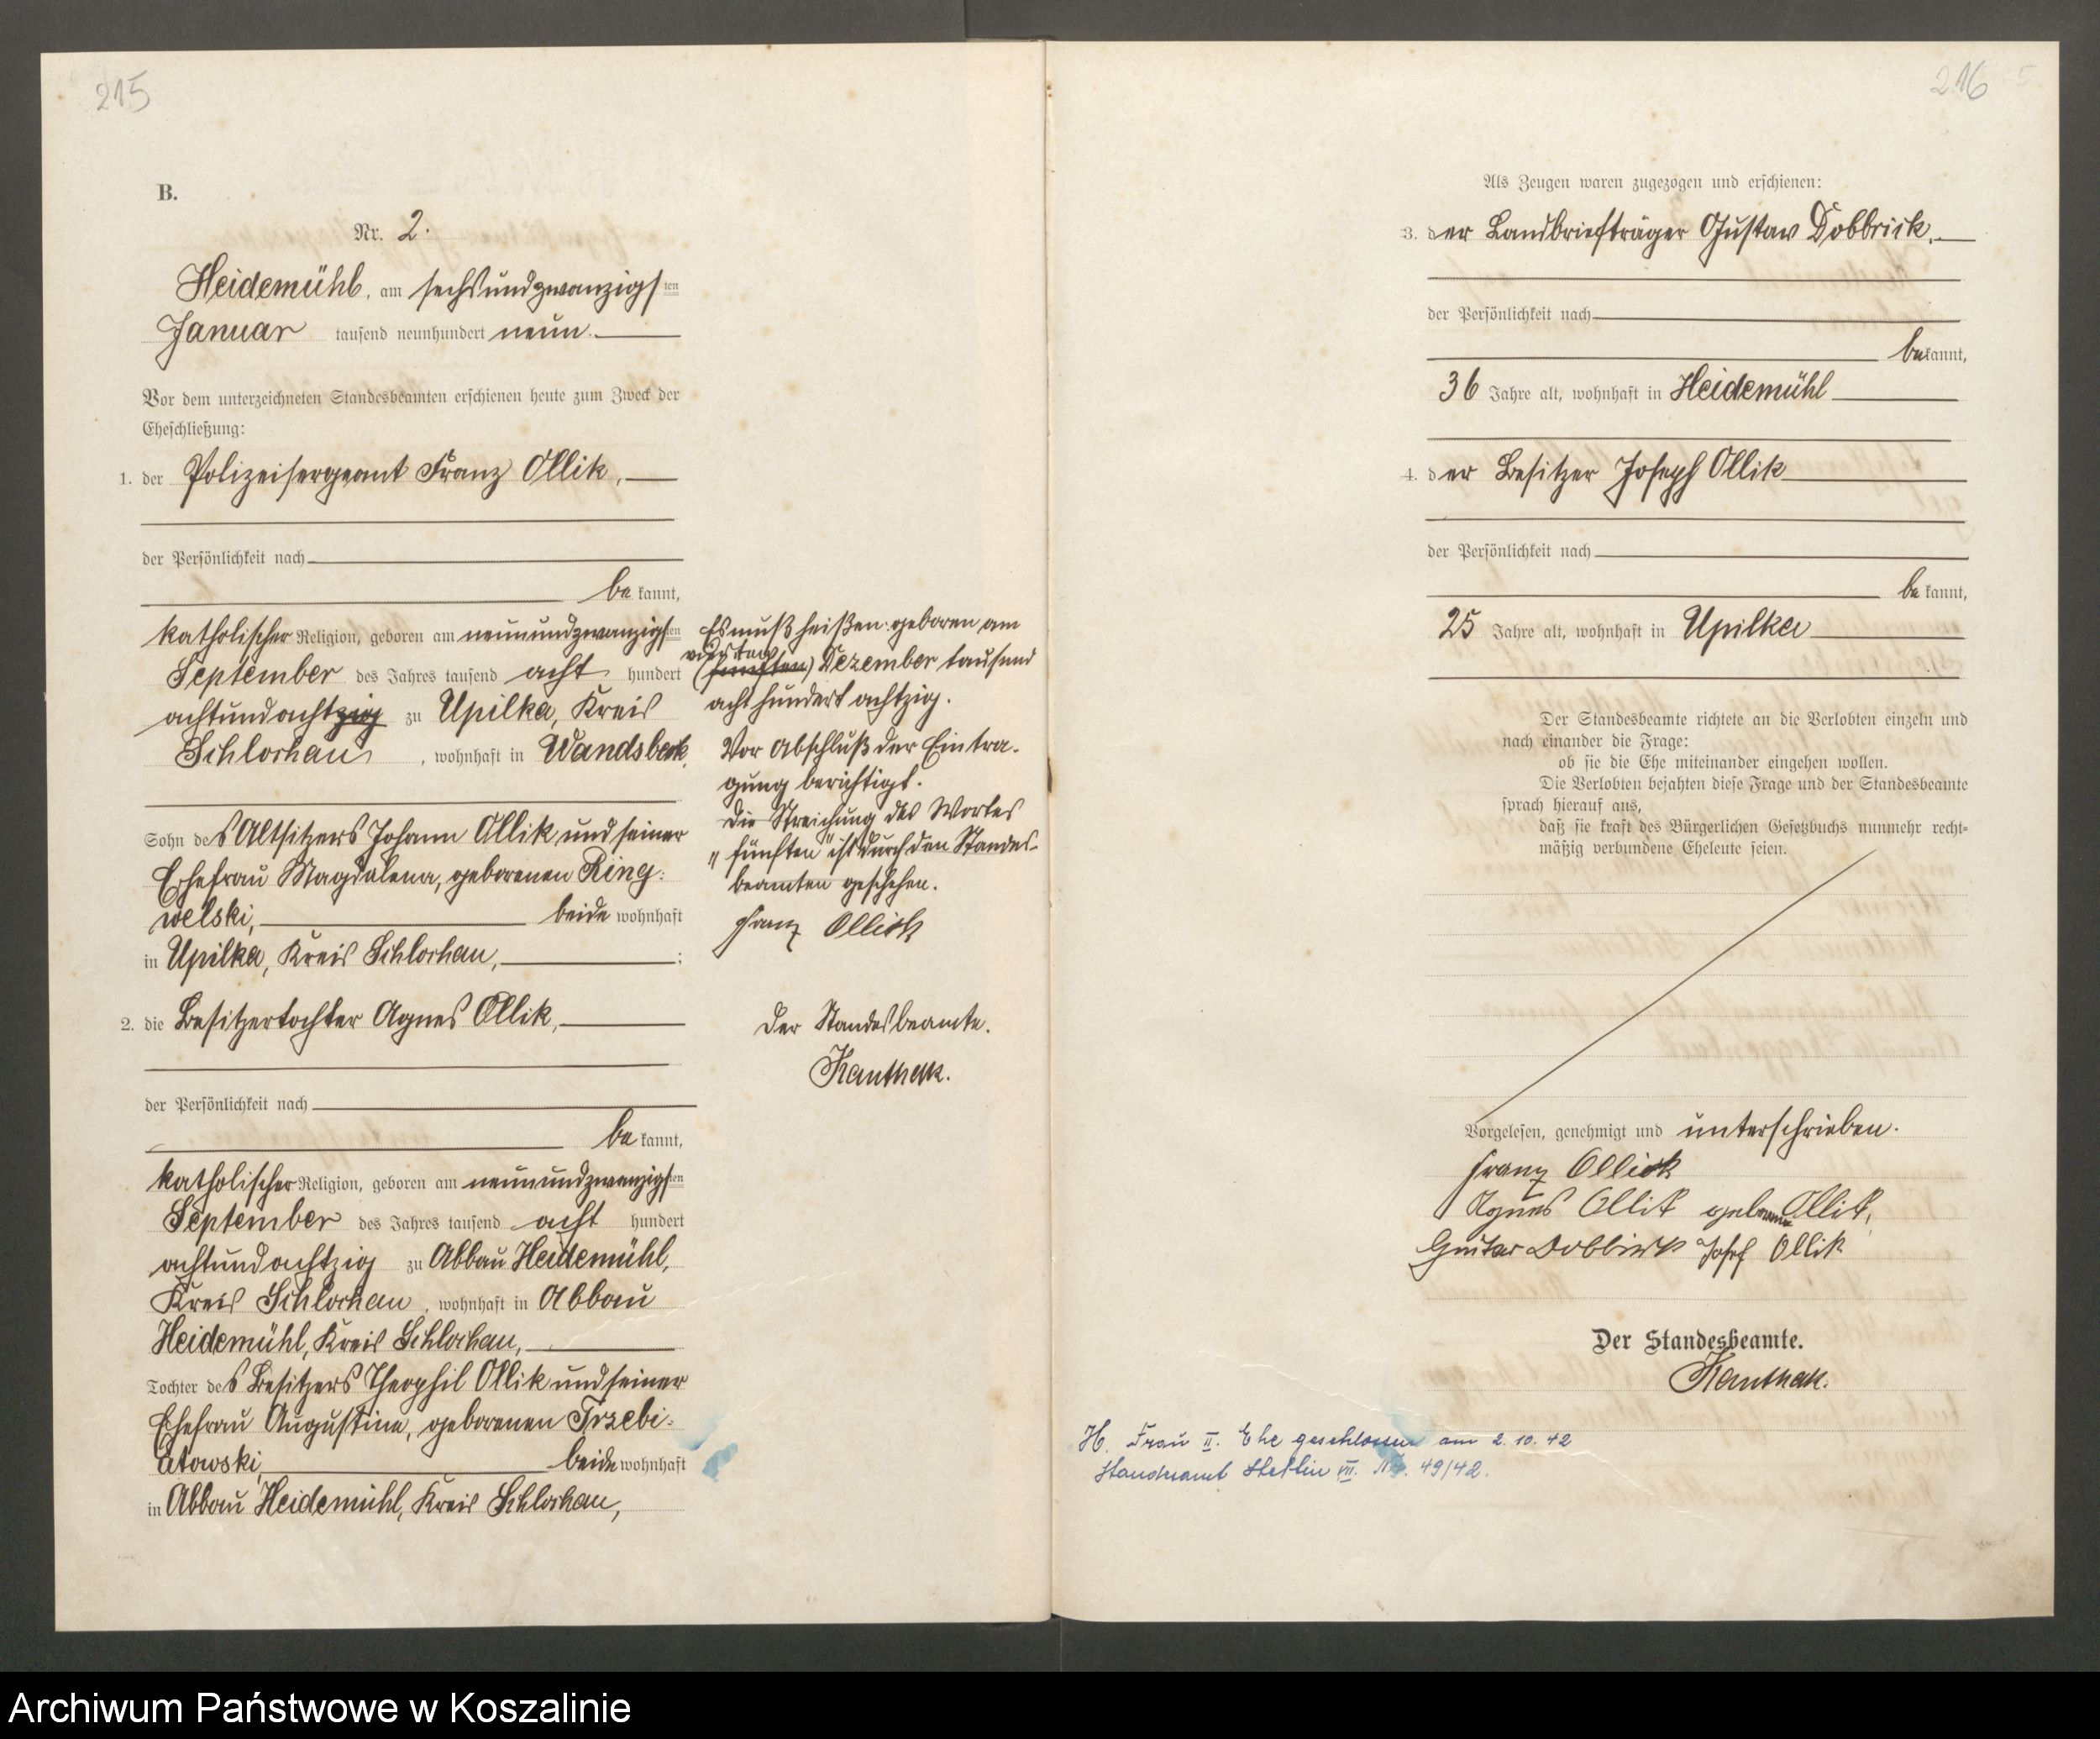 215
B.
Nr. 2.
Heidemühl, am sechsundzwanzigsten
Januar tausend neunhundert neun.
Vor dem unterzeichneten Standesbeamten erschienen heute zum Zweck der
Eheschließung:
1. der Polizeisergeant Franz Ollik,
der Persönlichkeit nach
bekannt,
katholischer Religion, geboren am neunundzwanzigsten
September des Jahres tausend acht hundert
achtundachtzig zu Upilka, Kreis
Schlochau, wohnhaft in Wandsbeck,
Sohn des Altsitzers Johann Ollik und seiner
Ehefrau Magdalena, geborenen Ring-
welski, beide wohnhaft
in Upilka, Kreis Schlochau,;
2. die Besitzertochter Agnes Ollik,
der Persönlichkeit nach
bekannt,
katholischer Religion, geboren am neunundzwanzigsten
September des Jahres tausend acht hundert
achtundachtzig zu Abbau Heidemühl,
Kreis Schlochau, wohnhaft in Abbau
Heidemühl, Kreis Schlochau,
Tochter des Besitzers Theophil Ollik und seiner
Ehefrau Augustine, geborenen Trzebi-
atowski, beide wohnhaft
in Abbau Heidemühl, Kreis Schlochau,
Es muß heißen: geboren am
vierten
(fünften) Dezember tausend
acht hundert achtzig.
Vor Abschluß der Eintra-
gung berichtigt.
Die Streichung des Wortes
„fünften" ist durch den Standes-
beamten geschehen.
Franz Ollick
Der Standesbeamte.
Kanthak.
216
5
Als Zeugen waren zugezogen und erschienen:
3. der Landbriefträger Gustav Dobbrick,
der Persönlichkeit nach
bekannt,
36 Jahre alt, wohnhaft in Heidemühl
4. der Besitzer Joseph Ollik
der Persönlichkeit nach
bekannt,
25 Jahre alt, wohnhaft in Upilka
Der Standesbeamte richtete an die Verlobten einzeln und
nach einander die Frage:
ob sie die Ehe miteinander eingehen wollen.
Die Verlobten bejahten diese Frage und der Standesbeamte
sprach hierauf aus,
daß sie kraft des Bürgerlichen Gesetzbuchs nunmehr recht-
mäßig verbundene Eheleute seien.
Vorgelesen, genehmigt und unterschrieben.
Franz Ollick
Agnes Ollik geborene Ollik,
Gustav Dobbrick Josef Ollik
Der Standesbeamte.
Kanthak.
H. Frau II. Ehe geschlossen am 2.10.42
Standesamt Stettin VII. Nr. 49/42.
Archiwum Państwowe w Koszalinie